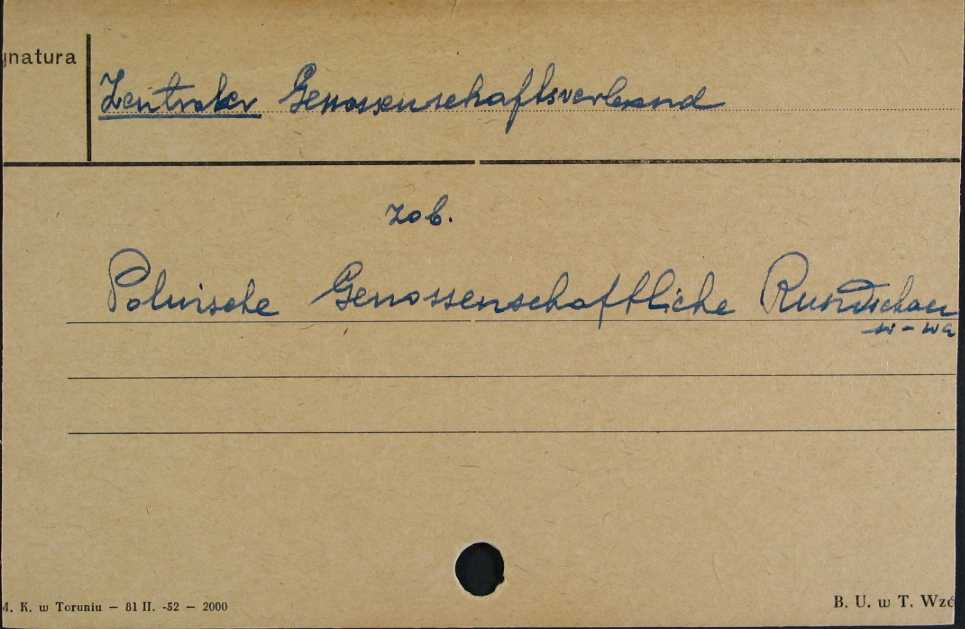 ynatura
Zentraler Genossenschaftsverband
zob.
Polnische Genossenschaftliche Rundschau
W-wa
M. K. w Toruniu — 81 II. -52 — 2000
B. U. w T. Wzó